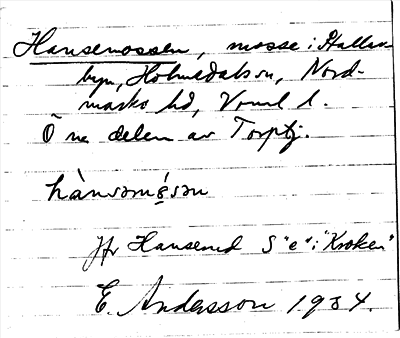 Hansemossen, mosse i Stallen-
byn, Holmedals sn, Nord-
marks hd, Vrml l.
Ö ne delen av Torptj.
hànsəmɷ́sən
Jfr Hansened S "e" i "Kroken"
E. Andersson 1934.